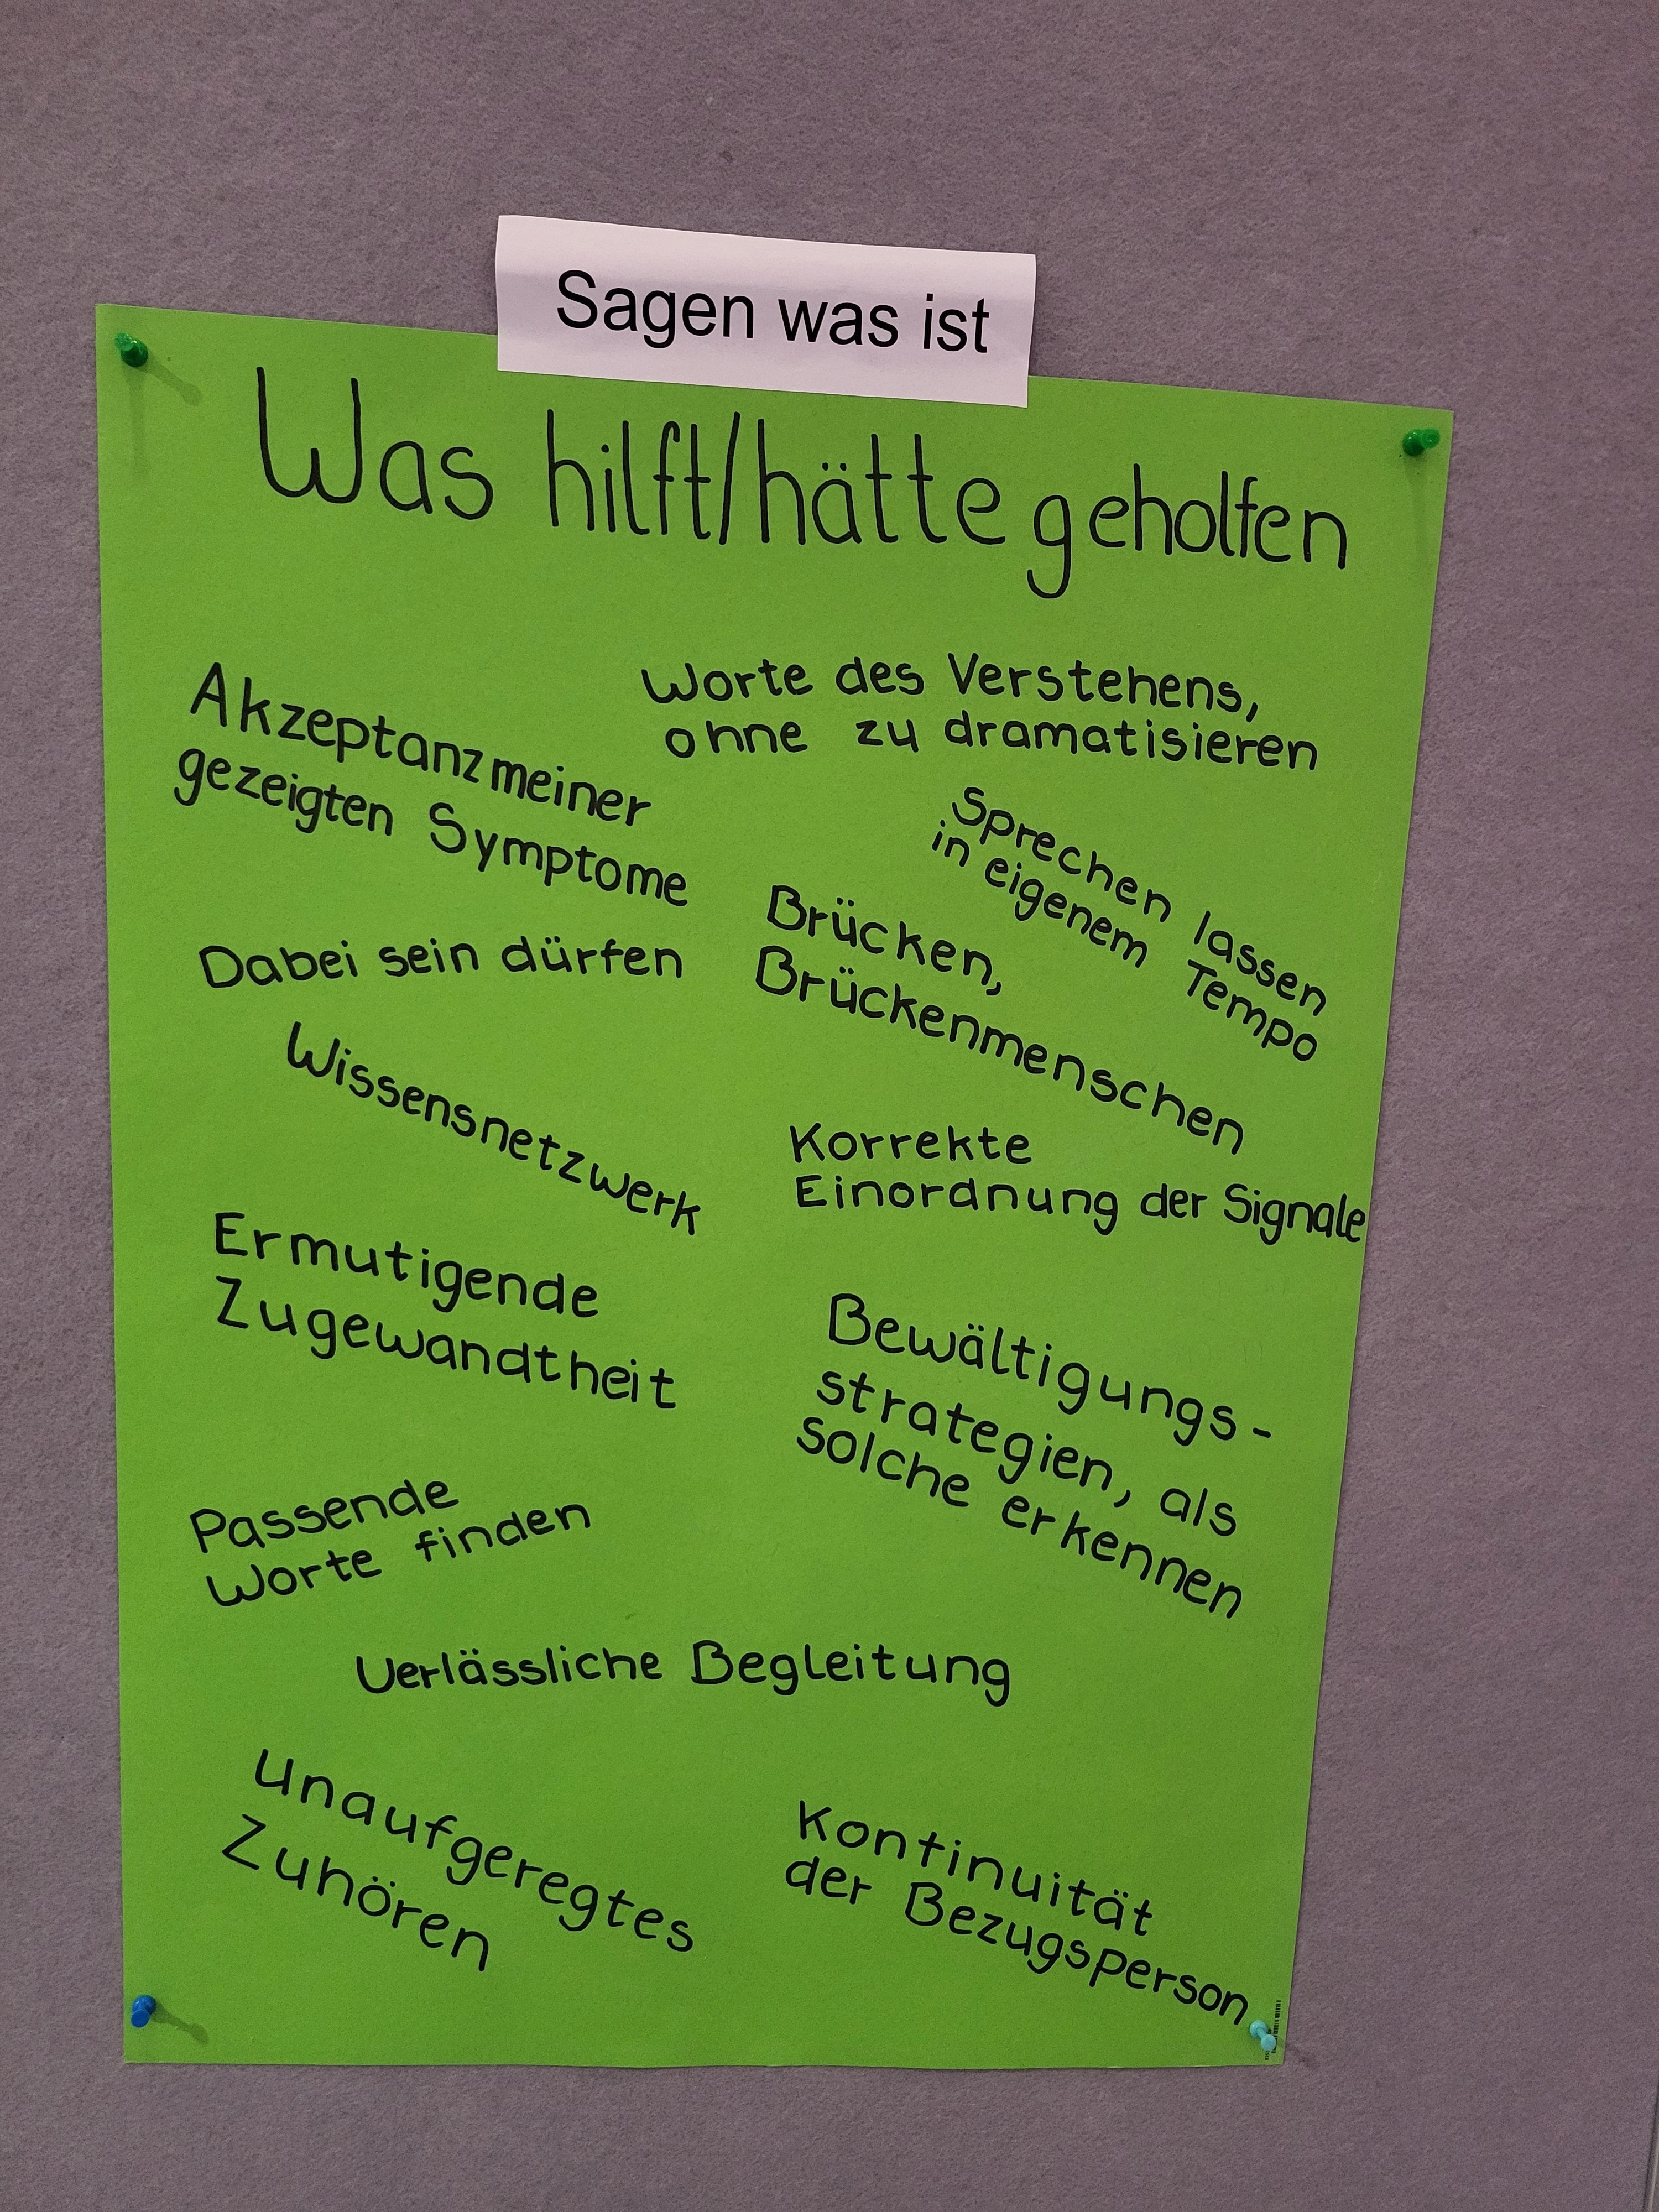 Sagen was ist
Was hilft/hätte geholfen
Worte des Verstehens,
ohne zu dramatisieren
Akzeptanz meiner
gezeigten Symptome
Sprechen lassen
in eigenem Tempo
Dabei sein dürfen
Brücken,
Brückenmenschen
Wissensnetzwerk
Korrekte
Einordnung der Signale
Ermutigende
Zugewandtheit
Bewältigungs-
strategien, als
solche erkennen
Passende
Worte finden
Verlässliche Begleitung
Unaufgeregtes
Zuhören
Kontinuität
der Bezugsperson